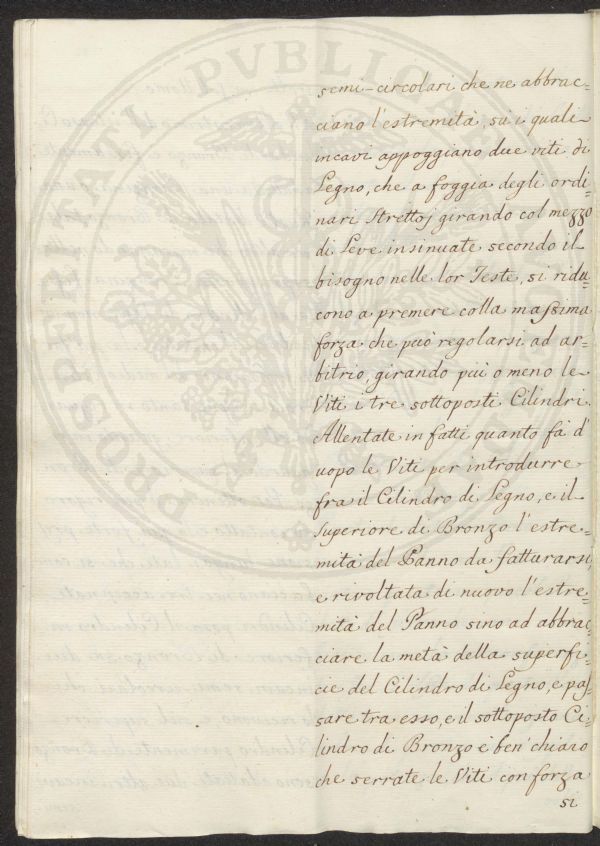 PROSPERITATI PVBLICAE
semi-circolari che ne abbrac=
ciano l'estremità, sù i quali
incavi appoggiano due viti di
Legno, che a foggia degli ordi=
nari Strettoj girando col mezzo
di Leve insinuate secondo il
bisogno nelle lor Teste, si ridu=
cono a premere colla massima
forza che può regolarsi ad ar=
bitrio, girando più o meno le
Viti i tre sottoposti Cilindri.
Allentate in fatti quanto fà d'
uopo le Viti per introdurre
fra il Cilindro di Legno, e il
superiore di Bronzo l'estre=
mità del Panno da fatturarsi,
e rivoltata di nuovo l'estre=
mità del Panno sino ad abbrac=
ciare la metà della superfi=
cie del Cilindro di Legno, e pas=
sare tra esso, e il sottoposto Ci=
lindro di Bronzo è ben' chiaro
che serrate le Viti con forza
si